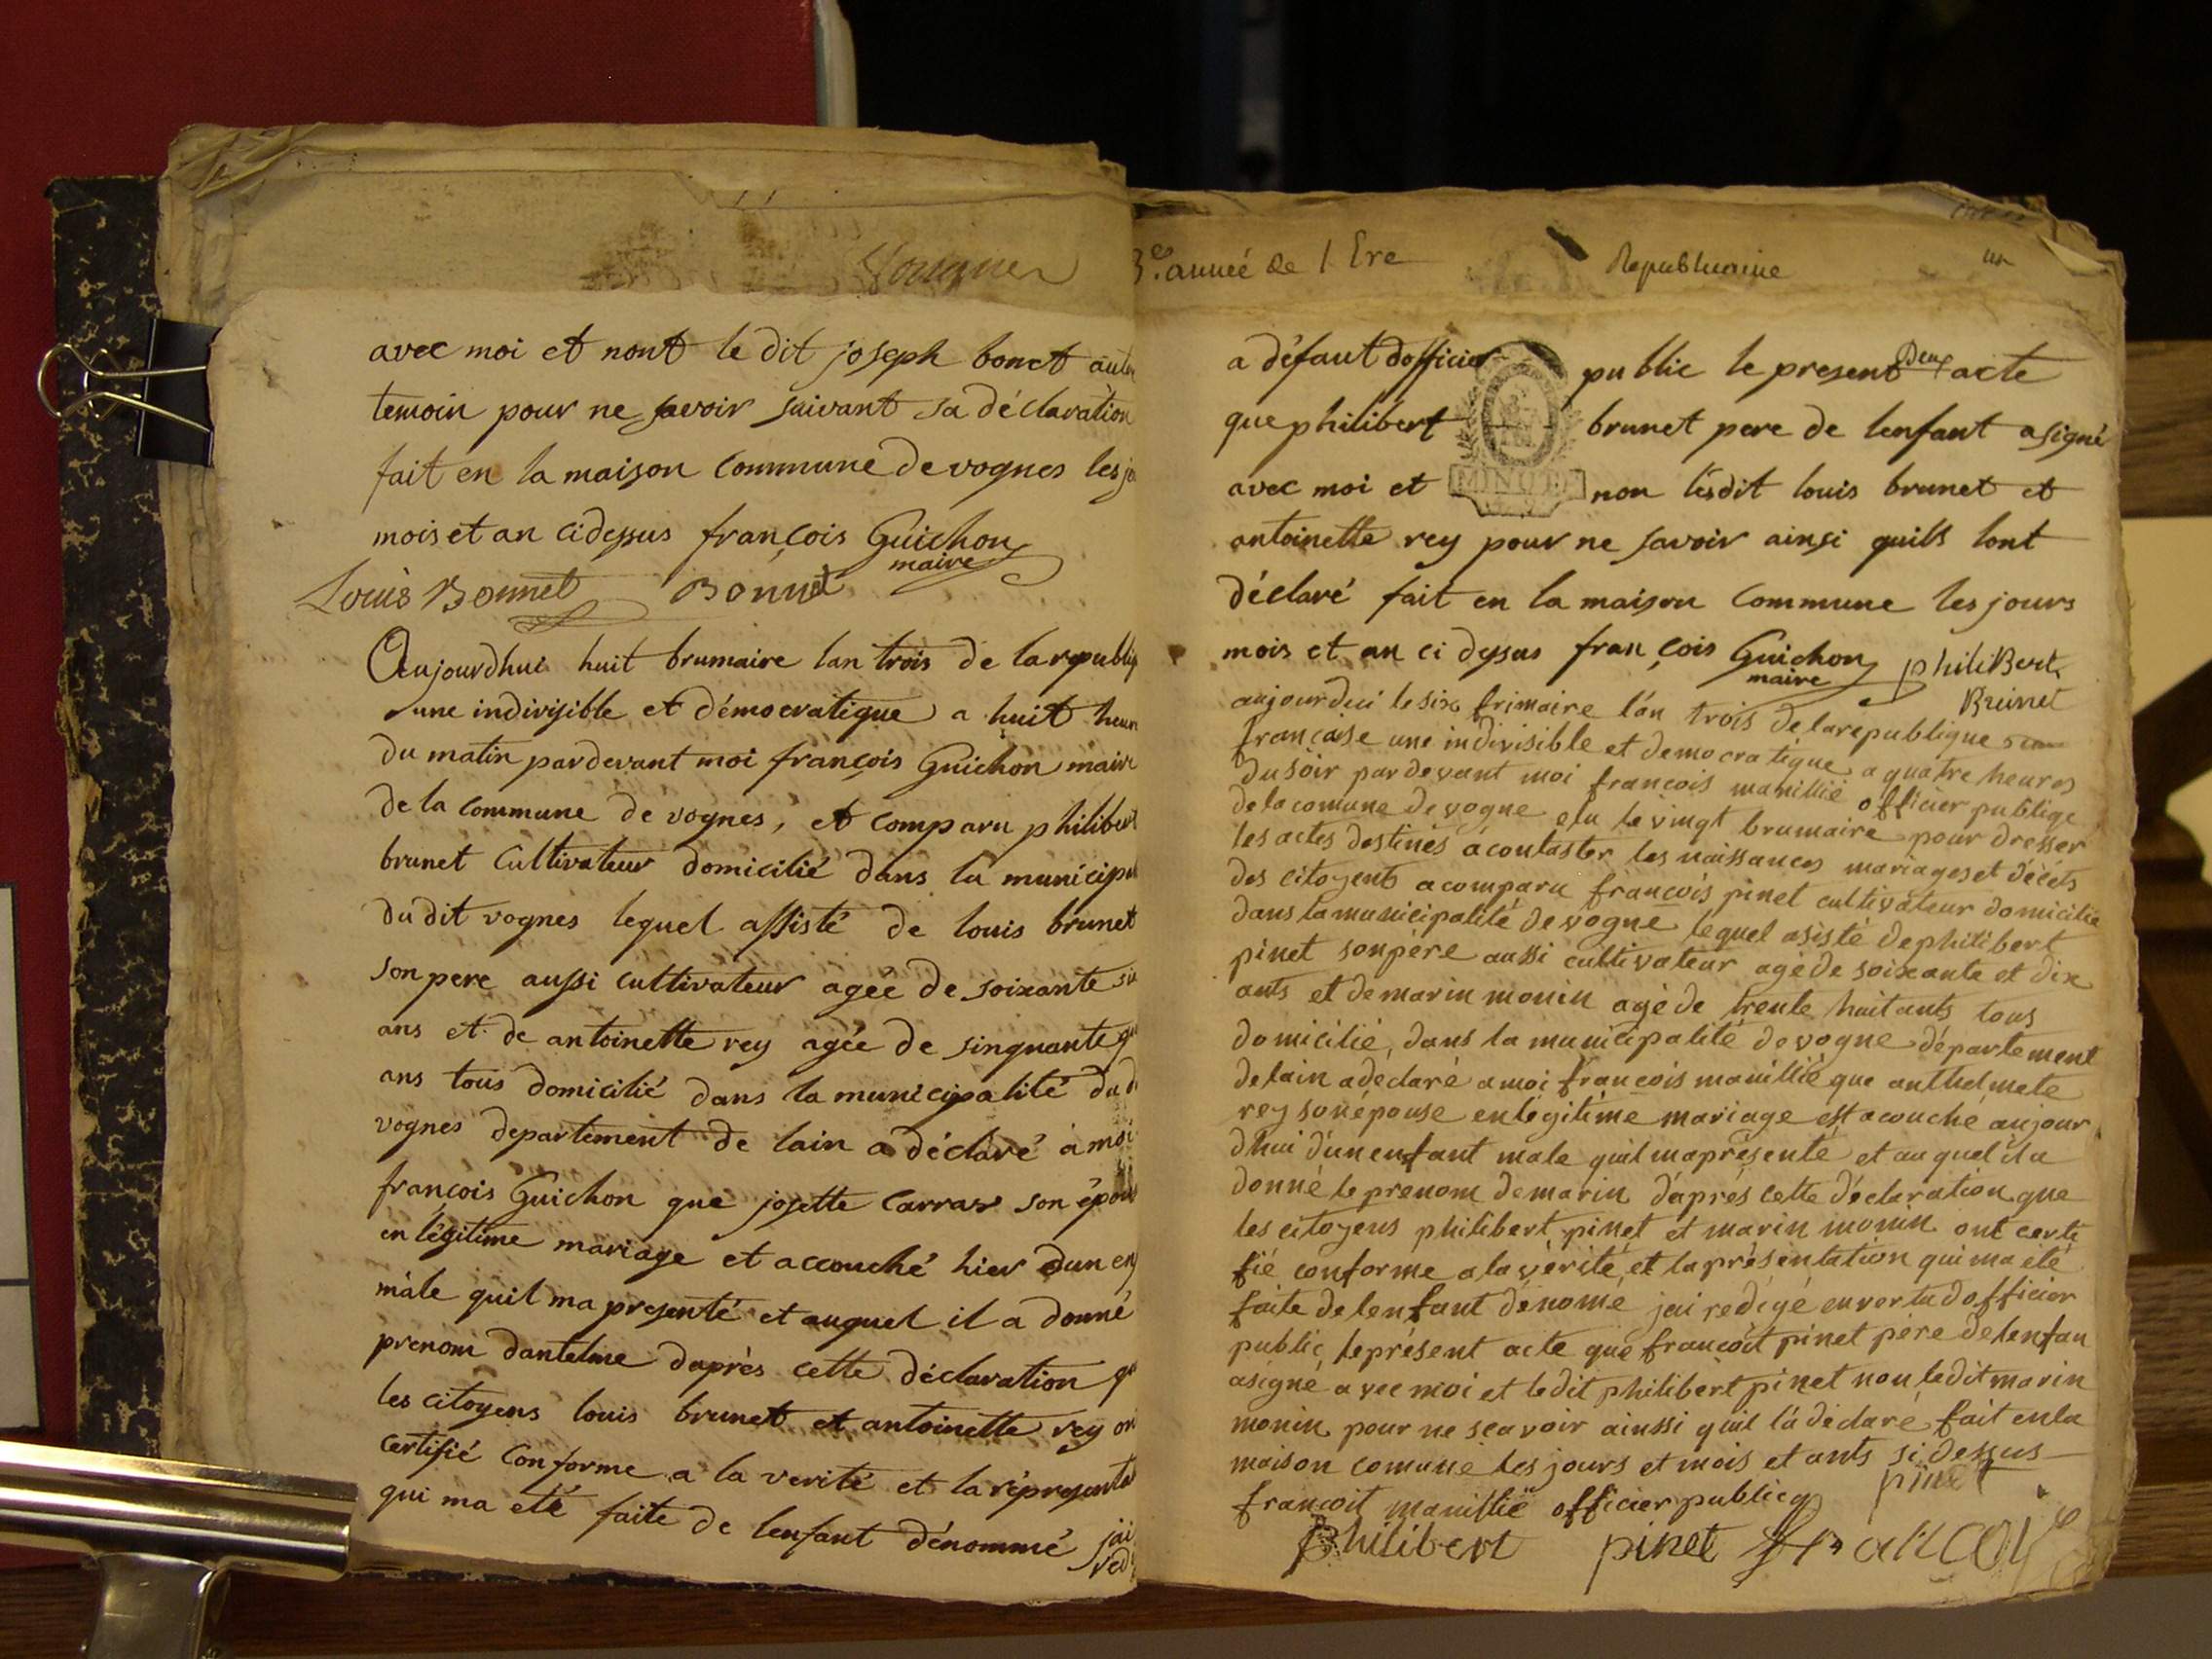 Vougnes
avec moi et nont le dit joseph bonet autre
temoin pour ne savoir suivant sa déclaration
fait en la maison commune de vognes les jo
mois et an cidessus françois Guichon
maire
Louis Bonnet Bonnet
Aujourdhui huit brumaire lan trois de la republiq
une indivisible et démocratique a huit heur
du matin pardevant moi françois Guichon maire
de la commune de vognes, et comparu philibert
brunet cultivateur domicilié dans la municipal
du dit vognes lequel assisté de louis brunet
son pere aussi cultivateur agée de soixante six
ans et de antoinette rey agée de sinquante qu
ans tous domicilié dans la municipalité du d
vognes departement de lain a déclaré à moi
françois Guichon que josette carrar son épous
en légitime mariage et accouché hier dun en
mâle quil ma presenté et auquel il a donné
prenom dantelme daprès cette déclaration qu
les citoyens louis brunet et antoinette rey on
certifié conforme a la verité et la répresentat
qui ma eté faite de lenfant dénommé jai
red
3e. année de l Ere Republicaine
a défaut dofficier public le present acte
Deux
que philibert brunet pere de lenfant a signé
MINUTE
avec moi et non lésdit louis brunet et
antoinette rey pour ne savoir ainsi quils lont
déclaré fait en la maison commune les jours
mois et an ci dessus françois Guichon philiBert
maire Brunet
aujourdui le six frimaire l'an trois de la republique
française une indivisible et democratique a quatre heures
du soir par devant moi françois manillié officier publige
de la comune de vogne elu le vingt brumaire pour dresser
les actes destinés a contaster les naissances mariages et décéts
des citoyents a comparu françois pinet cultivateur domicilié
dans la municipalité de vogne lequel asisté de philibert
pinet son père aussi cultivateur agé de soixante et dix
ants et de marin monin agé de trente huit ants tous
domicilié, dans la municipalité de vogne département
de lain a declaré a moi françois manillié que anthelmete
rey son épouse en légitime mariage est acouché aujour
dhui d'un enfant male quil ma présenté et au quel il a
donné le prenom de marin d'aprés cette déclaration que
les citoyens philibert pinet et marin monin ont certi
fié conforme a la vérité, et la présentation qui ma été
faite de lenfant dénomé jai redigé en vertu dofficier
public, le présent acte que françoit pinet père de lenfan
a signé avec moi et le dit philibert pinet non le dit marin
monin pour ne scavoir ainssi quil l'a déclaré fait en la
maison comune les jours et mois et ants si dessus
françoit manillié officier publicq pinet
Philibert pinet françois